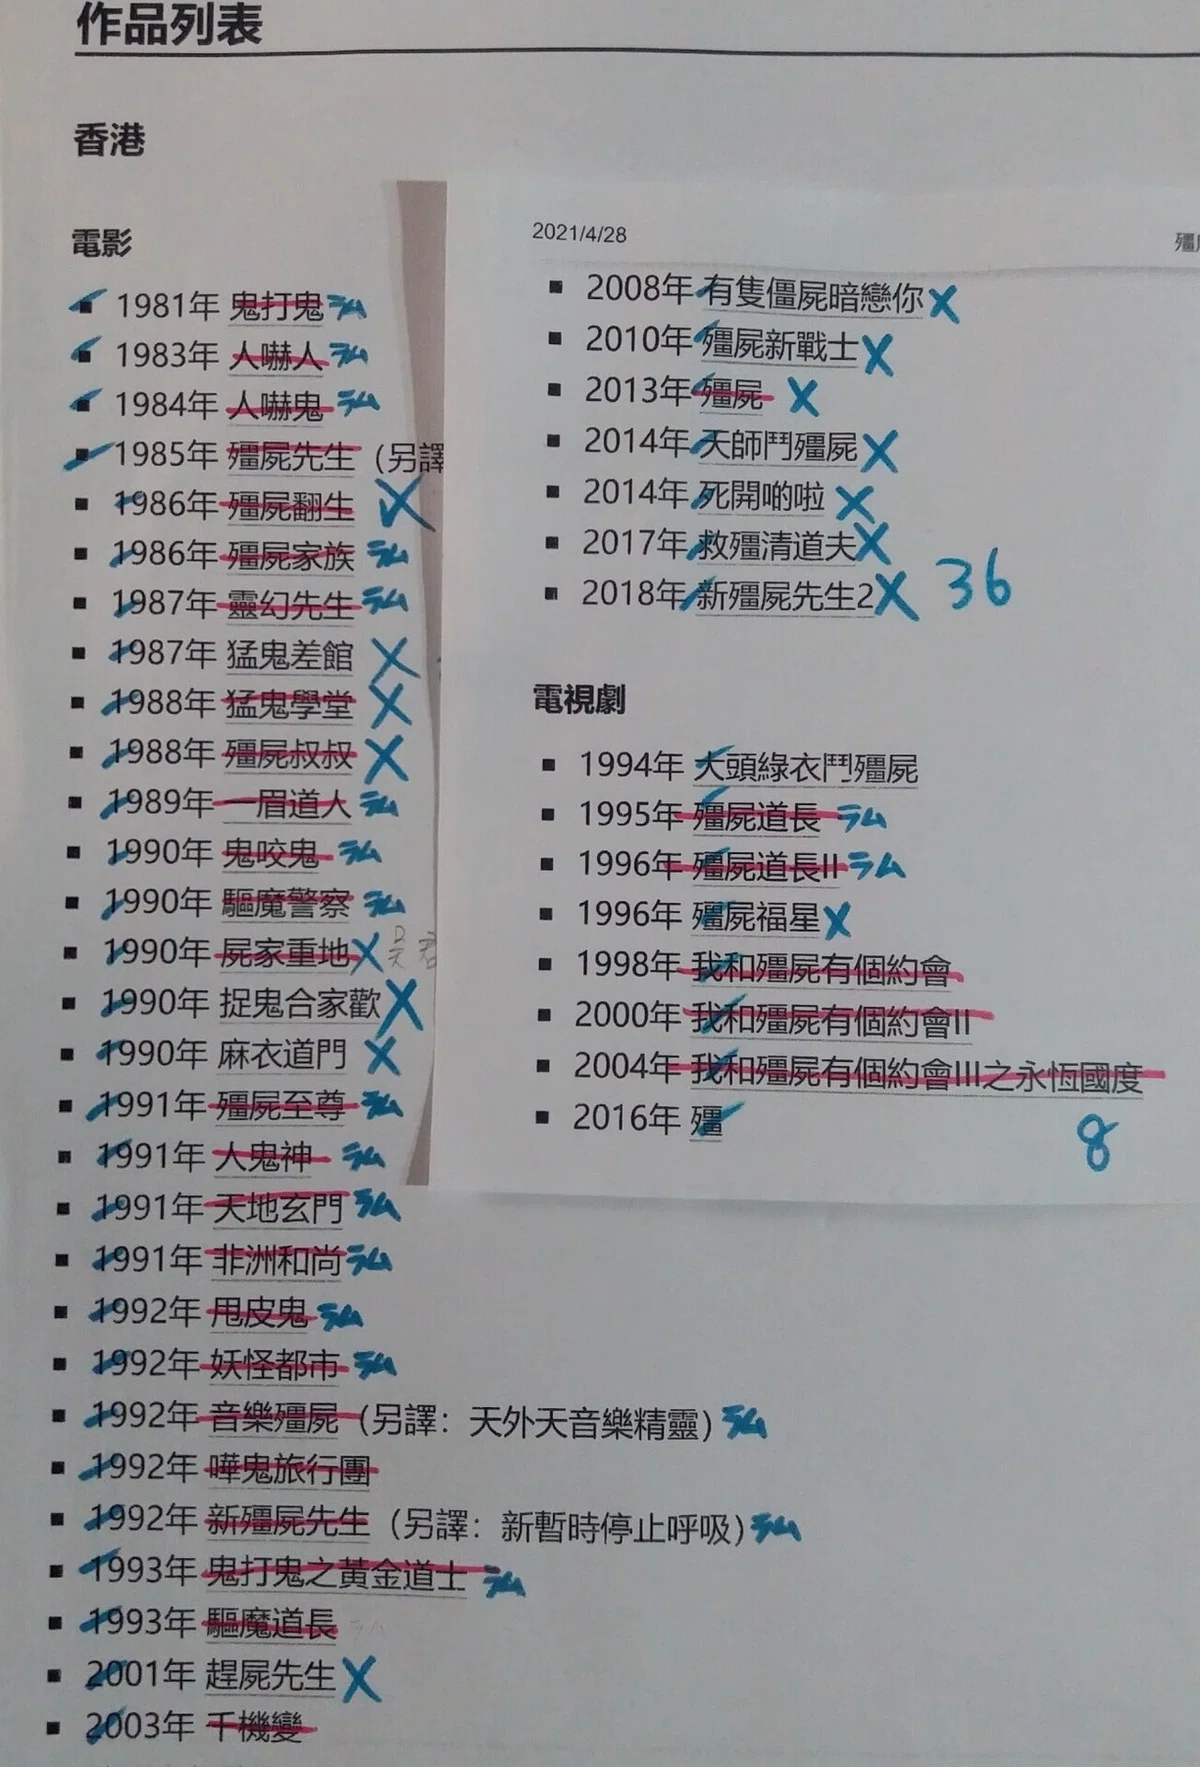 作品列表
香港
電影
1981年 鬼打鬼 ラム
1983年 人嚇人 ラム
1984年 人嚇鬼 ラム
1985年 殭屍先生（另譯
1986年 殭屍翻生 X
1986年 殭屍家族 ラム
1987年 靈幻先生 ラム
1987年 猛鬼差館 X
1988年 猛鬼學堂 X
1988年 殭屍叔叔 X
1989年 一眉道人 ラム
1990年 鬼咬鬼 ラム
1990年 驅魔警察 ラム
1990年 屍家重地 X 吳君
1990年 捉鬼合家歡 X
1990年 麻衣道門 X
1991年 殭屍至尊 ラム
1991年 人鬼神 ラム
1991年 天地玄門 ラム
1991年 非洲和尚 ラム
1992年 甩皮鬼 ラム
1992年 妖怪都市 ラム
1992年 音樂殭屍（另譯：天外天音樂精靈）ラム
1992年 嘩鬼旅行團
1992年 新殭屍先生（另譯：新暫時停止呼吸）ラム
1993年 鬼打鬼之黃金道士 ラム
1993年 驅魔道長 ラム
2001年 趕屍先生 X
2003年 千機變
2021/4/28
2008年 有隻僵屍暗戀你 X
2010年 殭屍新戰士 X
2013年 殭屍 X
2014年 天師鬥殭屍 X
2014年 死開啲啦 X
2017年 救殭清道夫 X
2018年 新殭屍先生2 X 36
電視劇
1994年 大頭綠衣鬥殭屍
1995年 殭屍道長 ラム
1996年 殭屍道長II ラム
1996年 殭屍福星 X
1998年 我和殭屍有個約會
2000年 我和殭屍有個約會II
2004年 我和殭屍有個約會III之永恆國度
2016年 殭
8